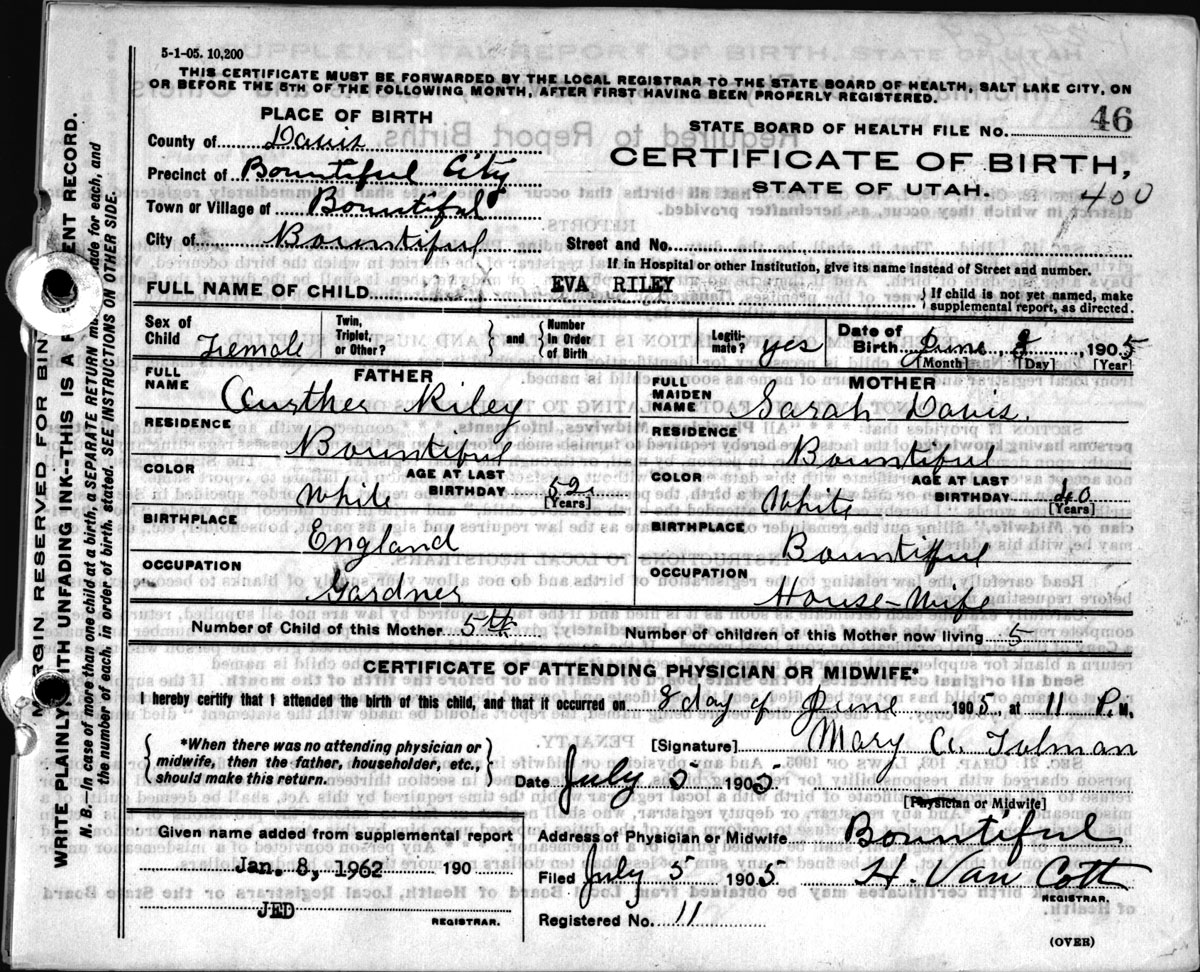 5-1-05. 10,200
THIS CERTIFICATE MUST BE FORWARDED BY THE LOCAL REGISTRAR TO THE STATE BOARD OF HEALTH, SALT LAKE CITY, ON
OR BEFORE THE 5TH OF THE FOLLOWING MONTH, AFTER FIRST HAVING BEEN PROPERLY REGISTERED.
PLACE OF BIRTH
STATE BOARD OF HEALTH FILE NO. 46
County of Davis
CERTIFICATE OF BIRTH,
Precinct of Bountiful City
STATE OF UTAH. 400
Town or Village of Bountiful
City of Bountiful Street and No.
If in Hospital or other Institution, give its name instead of Street and number.
FULL NAME OF CHILD EVA RILEY
{If child is not yet named, make
supplemental report, as directed.
Sex of Child Female Twin, Triplet, or Other? } and { Number In Order of Birth Legitimate? yes Date of Birth June, 8, 1905
[Month] [Day] [Year]
FATHER
FULL NAME Aurther Riley
RESIDENCE Bountiful
COLOR White AGE AT LAST BIRTHDAY 52 [Years]
BIRTHPLACE England
OCCUPATION Gardner
MOTHER
FULL MAIDEN NAME Sarah Davis.
RESIDENCE Bountiful
COLOR White AGE AT LAST BIRTHDAY 40 [Years]
BIRTHPLACE Bountifful
OCCUPATION House-Wife
Number of Child of this Mother 5th Number of children of this Mother now living 5
CERTIFICATE OF ATTENDING PHYSICIAN OR MIDWIFE*
I hereby certify that I attended the birth of this child, and that it occurred on 8 day of June 1905, at 11 P. M.
{*When there was no attending physician or
midwife, then the father, householder, etc.,
should make this return.}
[Signature] Mary A. Tolman
Date July 5 1905
[Physician or Midwife]
Given name added from supplemental report
Jan. 8, 1962 190
JED
REGISTRAR.
Address of Physician or Midwife Bountiful
Filed July 5 1905 H. Van Cott
REGISTRAR.
Registered No. 11
(OVER)
MARGIN RESERVED FOR BIN
WRITE PLAINLY WITH UNFADING INK--THIS IS A P ENT RECORD.
N. B.--In case of more than one child at a birth, a SEPARATE RETURN mu made for each, and
the number of each, in order of birth, stated. SEE INSTRUCTIONS ON OTHER SIDE.